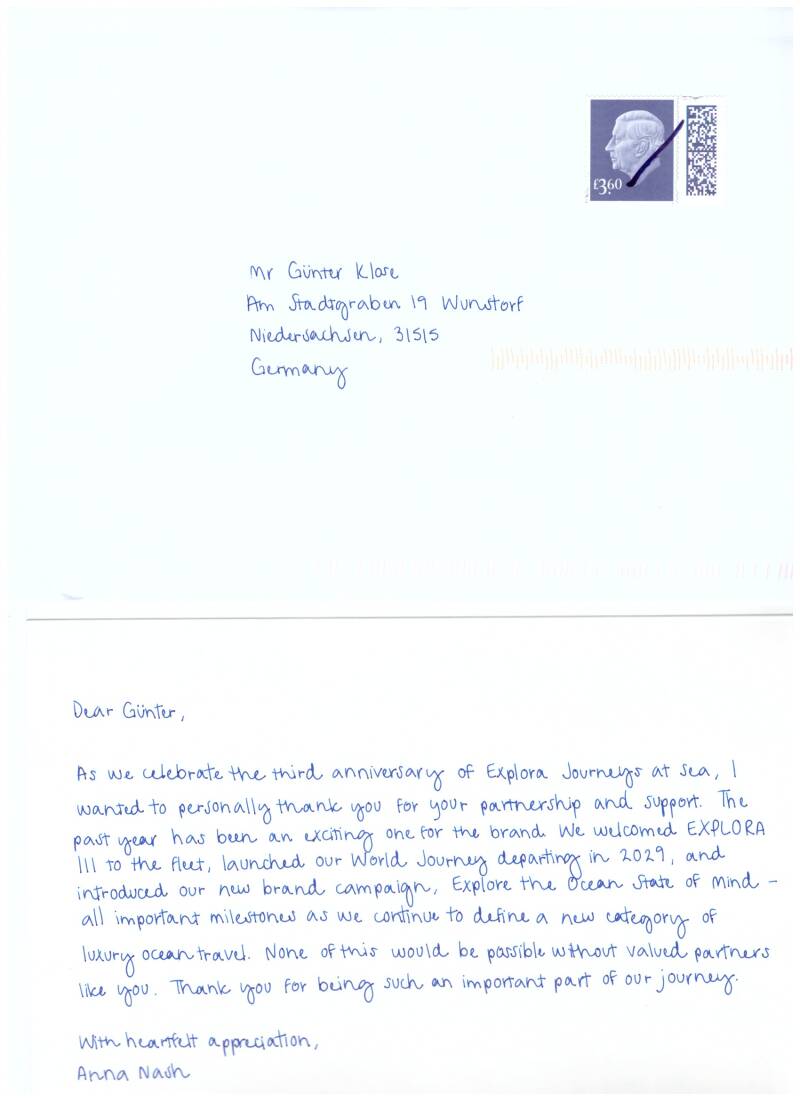 £3.60
Mr Günter Klose
Am Stadtgraben 19 Wunstorf
Niedersachsen, 31515
Germany
Dear Günter,
As we celebrate the third anniversary of Explora Journeys at sea, I
wanted to personally thank you for your partnership and support. The
past year has been an exciting one for the brand. We welcomed EXPLORA
III to the fleet, launched our World Journey departing in 2029, and
introduced our new brand campaign, Explore the Ocean State of Mind –
all important milestones as we continue to define a new category of
luxury ocean travel. None of this would be possible without valued partners
like you. Thank you for being such an important part of our journey.
With heartfelt appreciation,
Anna Nash